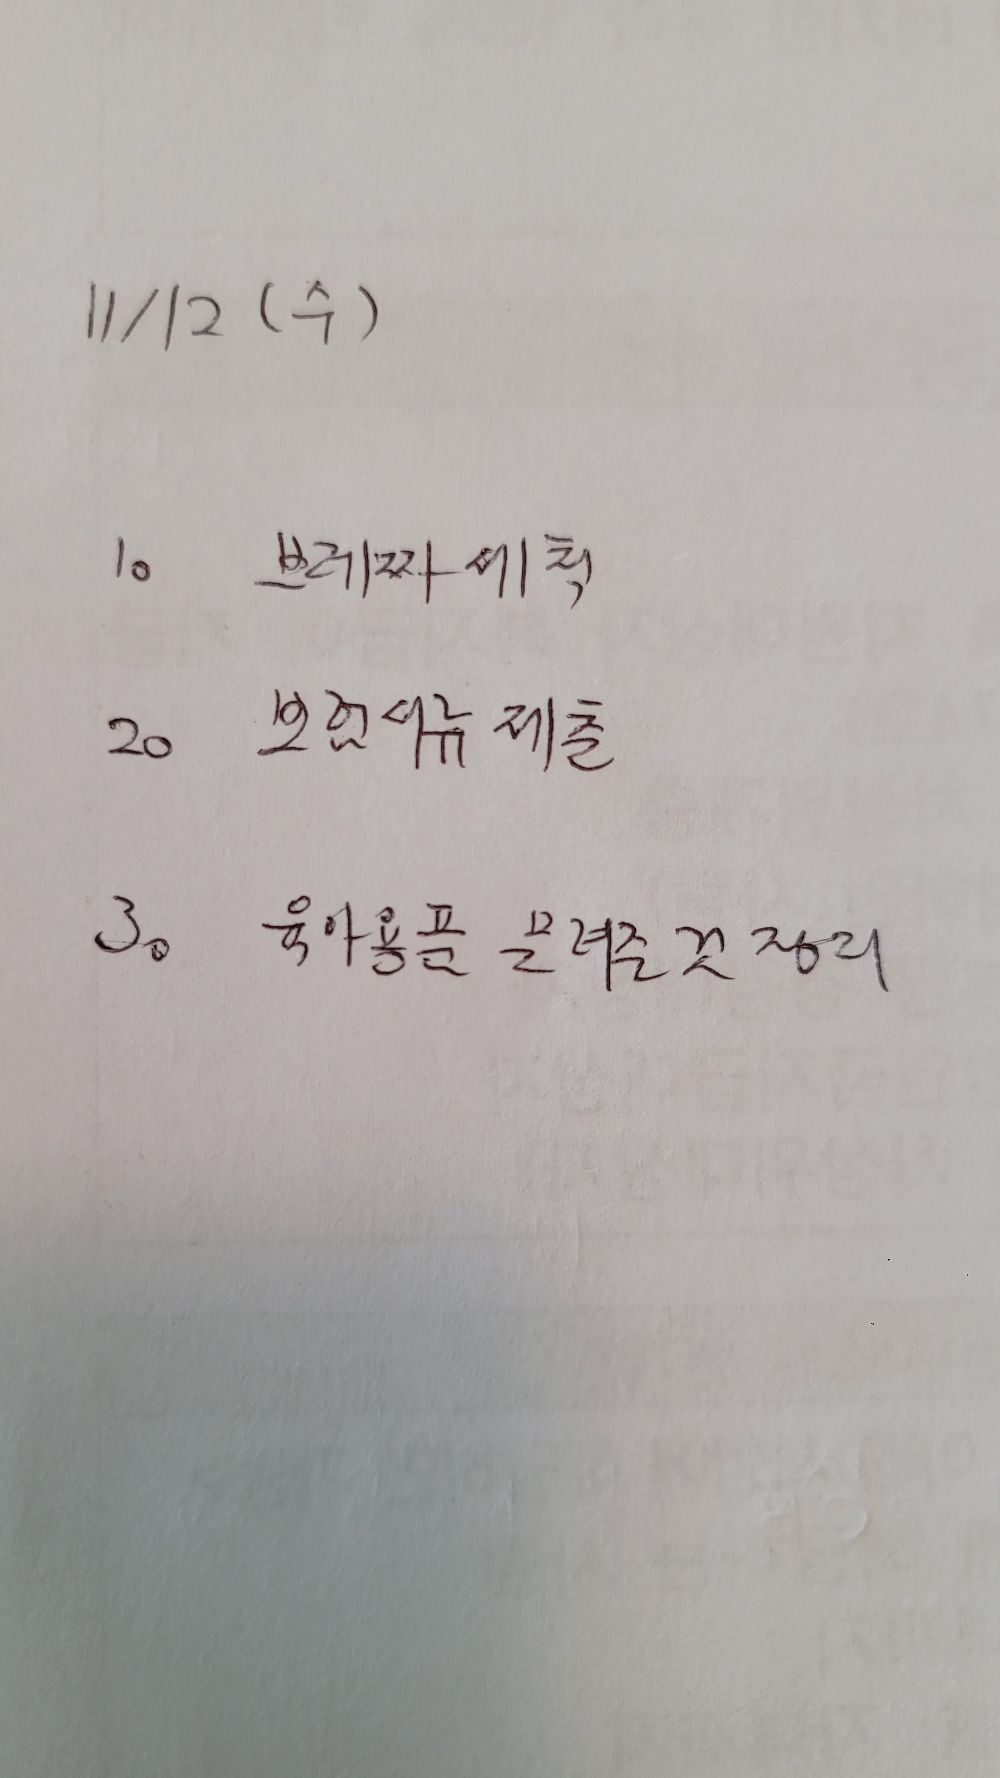 11/12 (수)
1. 브레짜 세척
2. 보험서류 제출
3. 육아용품 물려준 것 정리